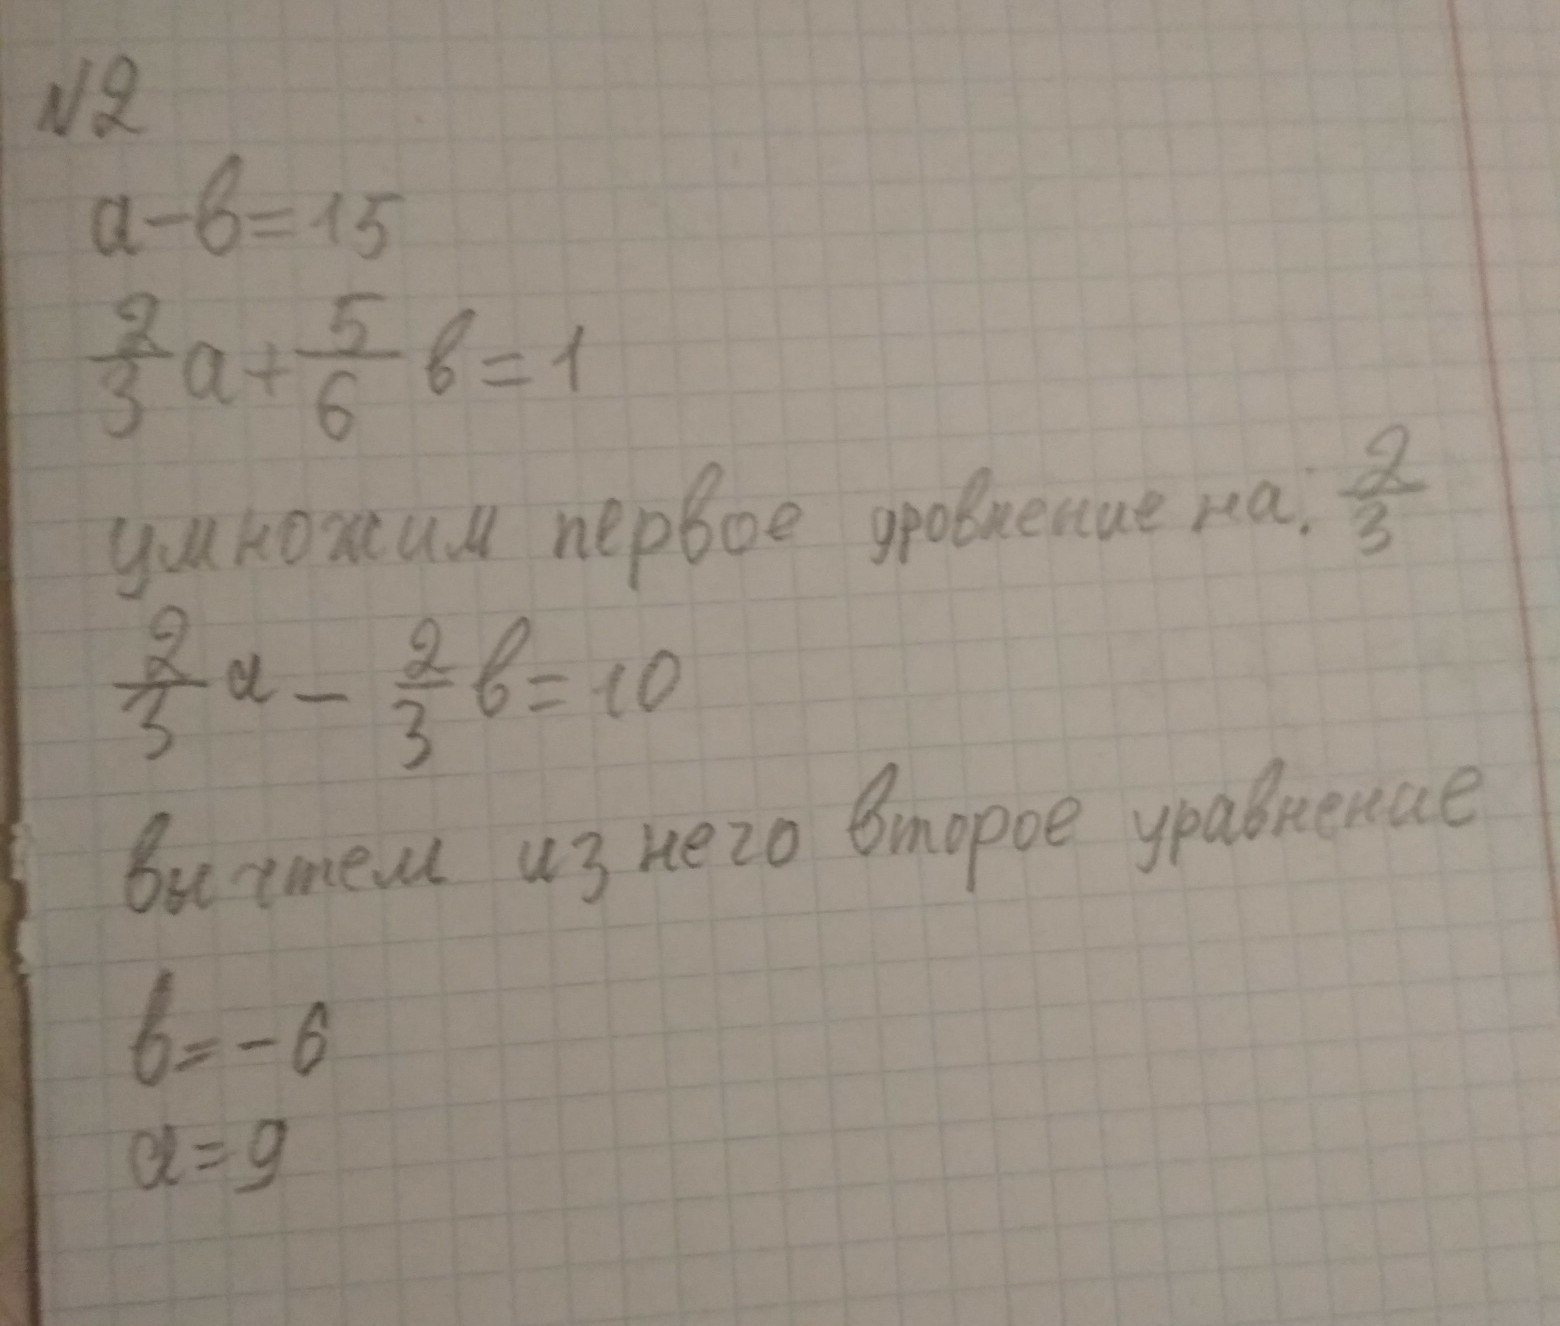 №2
a-b=15
2/3 a + 5/6 b = 1
умножим первое уровнение на: 2/3
2/3 a - 2/3 b = 10
вычтем из него второе уравнение
b=-6
a=9